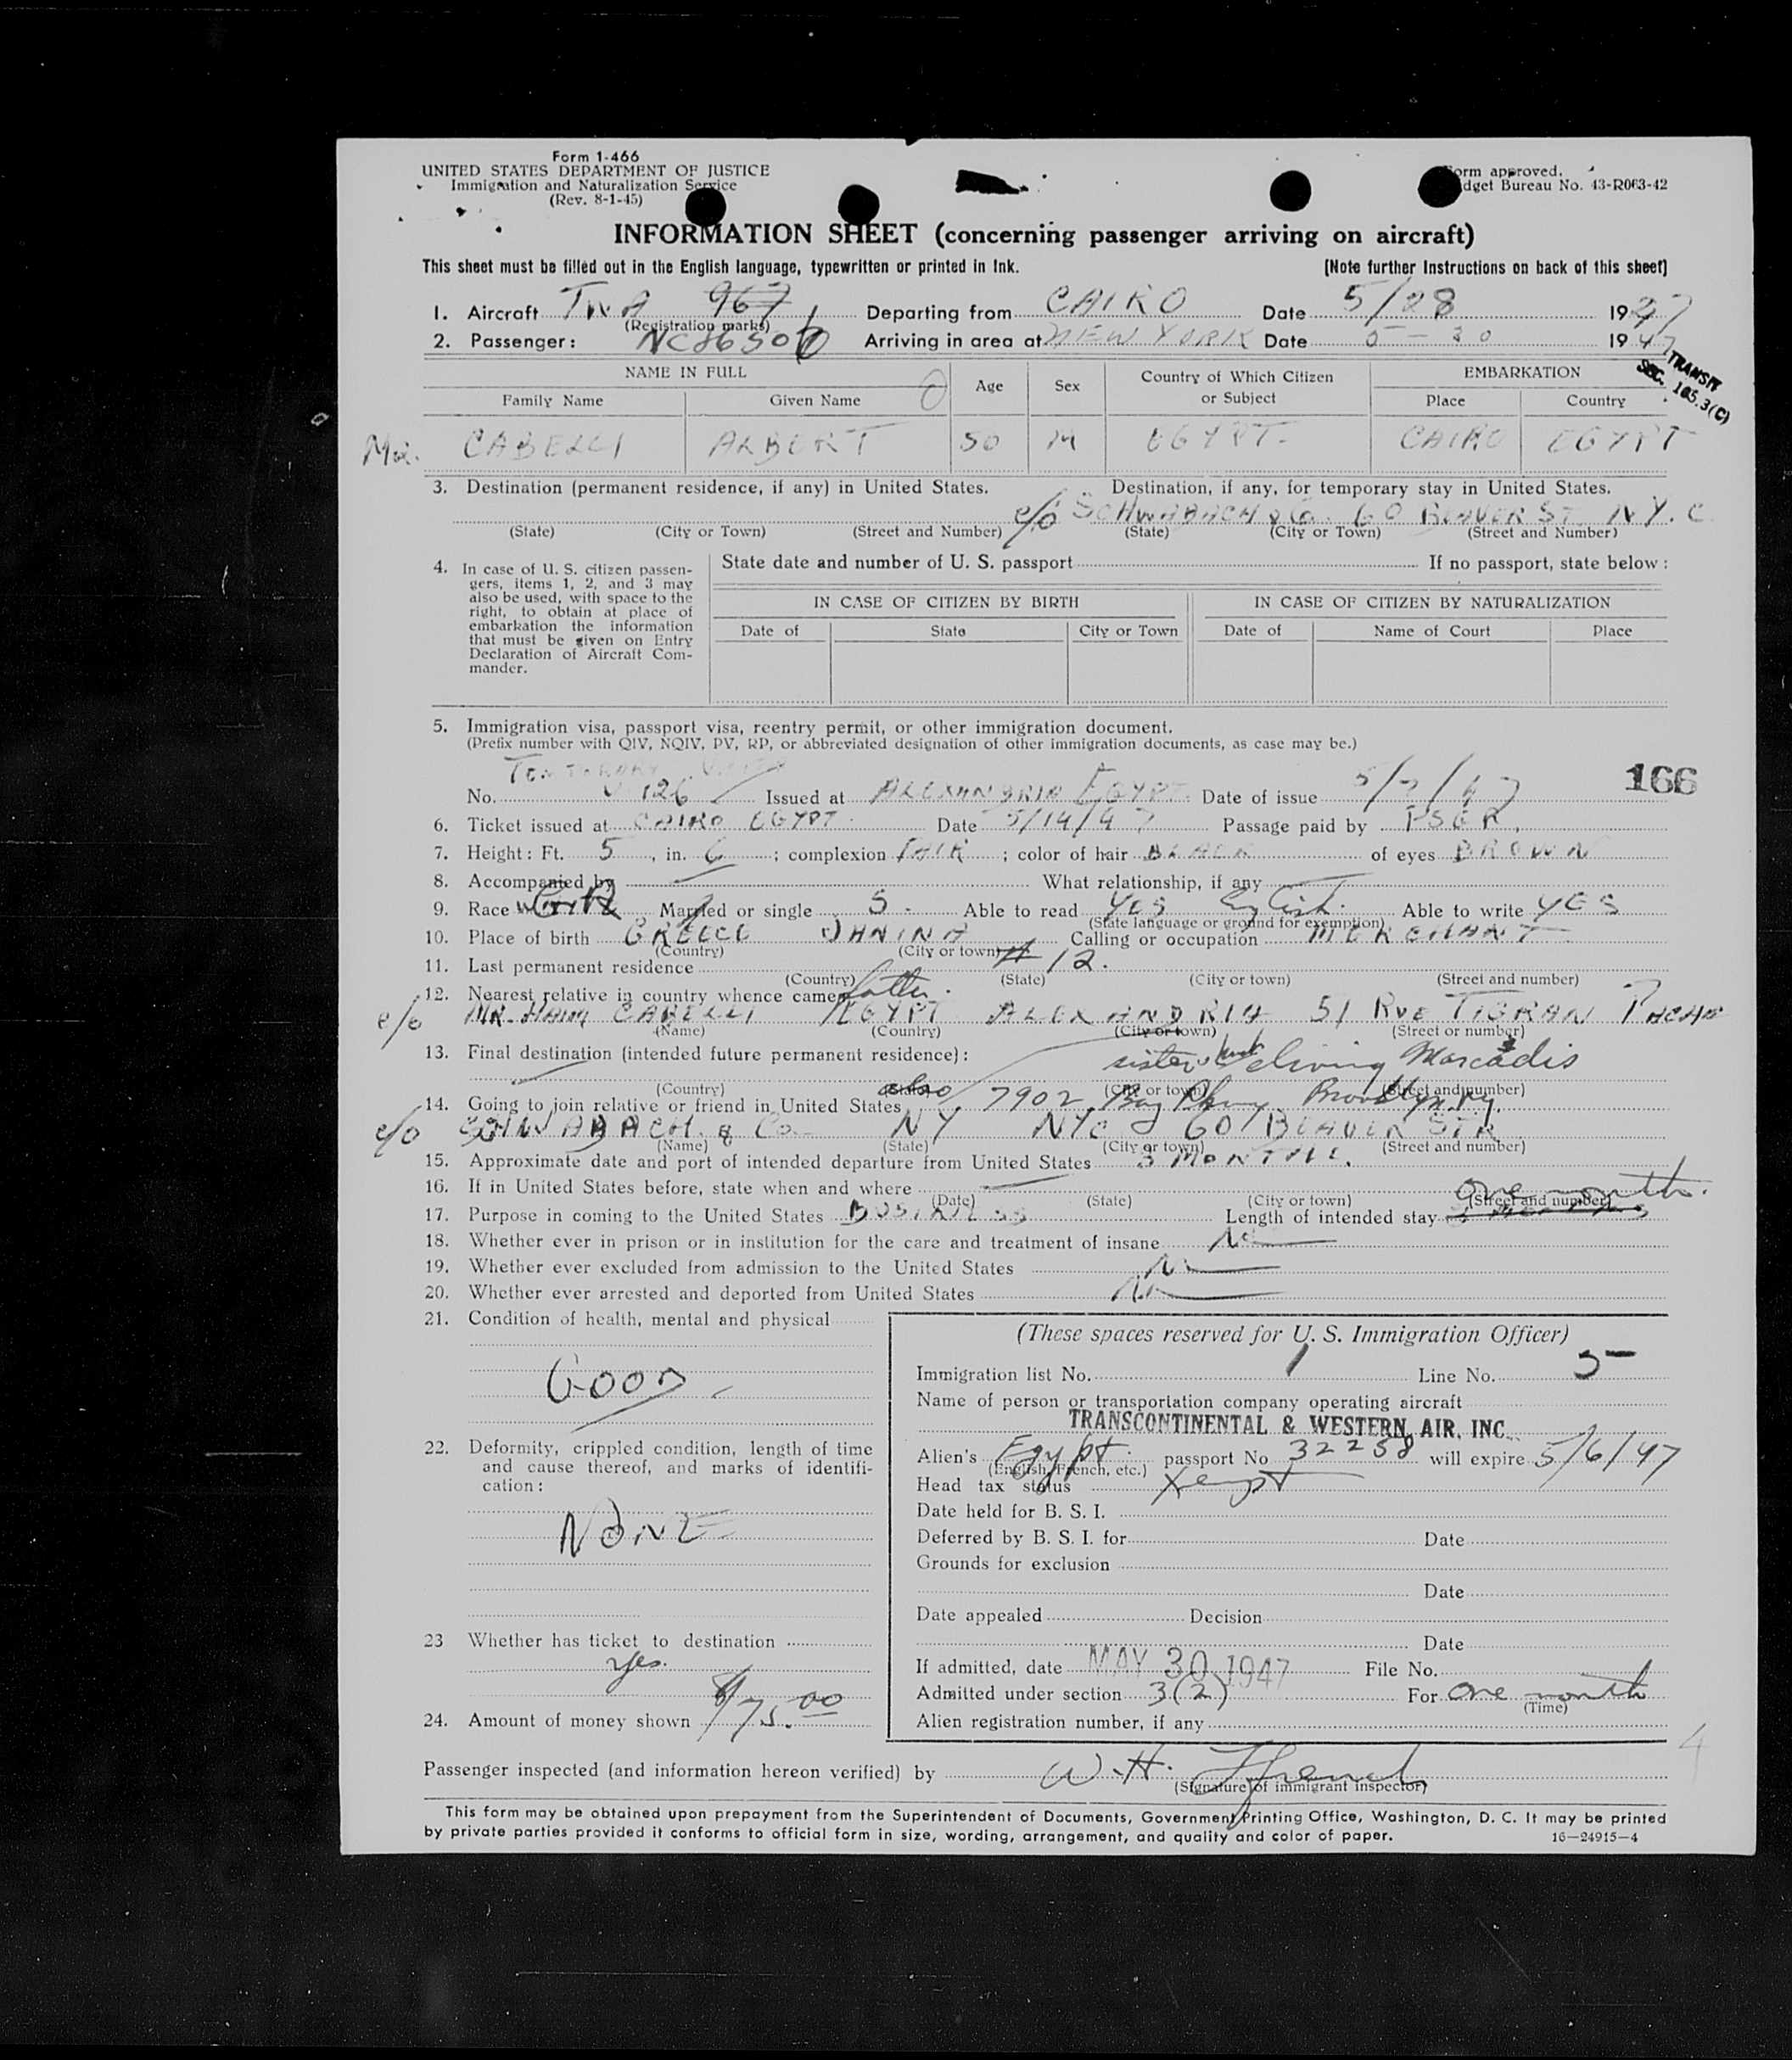 Form 1-466
UNITED STATES DEPARTMENT OF JUSTICE
Immigration and Naturalization Service
(Rev. 8-1-45)
orm approved.
dget Bureau No. 43-R063-42
INFORMATION SHEET (concerning passenger arriving on aircraft)
This sheet must be filled out in the English language, typewritten or printed in ink.
[Note further Instructions on back of this sheet]
1. Aircraft TWA 967 Departing from CAIRO Date 5/28 1947
(Registration marks)
2. Passenger: NC86506 Arriving in area at NEW YORK Date 5-30 1947
TRANSIT
SEC. 105.3(C)
NAME IN FULL Age Sex Country of Which Citizen or Subject EMBARKATION
Family Name Given Name Place Country
Mr. CABELLI ALBERT 50 M EGYPT. CAIRO EGYPT
3. Destination (permanent residence, if any) in United States. Destination, if any, for temporary stay in United States.
c/o SCHWABACH & Co. 60 BEAVER ST. N.Y.C.
(State) (City or Town) (Street and Number) (State) (City or Town) (Street and Number)
4. In case of U. S. citizen passen-
gers, items 1, 2, and 3 may
also be used, with space to the
right, to obtain at place of
embarkation the information
that must be given on Entry
Declaration of Aircraft Com-
mander.
State date and number of U. S. passport If no passport, state below:
IN CASE OF CITIZEN BY BIRTH IN CASE OF CITIZEN BY NATURALIZATION
Date of State City or Town Date of Name of Court Place
5. Immigration visa, passport visa, reentry permit, or other immigration document.
(Prefix number with QIV, NQIV, PV, RP, or abbreviated designation of other immigration documents, as case may be.)
166
No. V 126 Issued at ALEXANDRIA EGYPT. Date of issue 5/7/47
6. Ticket issued at CAIRO EGYPT. Date 5/14/47 Passage paid by PSGR.
7. Height: Ft. 5, in. 6; complexion FAIR; color of hair BLACK of eyes BROWN
8. Accompanied by What relationship, if any
9. Race Married or single S. Able to read YES English. Able to write YES
(State language or ground for exemption)
10. Place of birth GREECE JANINA Calling or occupation MERCHANT
(Country) (City or town)
11. Last permanent residence # 12.
(Country) (State) (City or town) (Street and number)
12. Nearest relative in country whence came father.
c/o MR. HAIM CABELLI EGYPT ALEXANDRIA 51 RUE TIGRAN PACHA
(Name) (Country) (City or town) (Street or number)
13. Final destination (intended future permanent residence):
sister living
(Country) (State) (City or town) (Street and number)
also 7902 Bay Pkwy Brooklyn, Ny.
14. Going to join relative or friend in United States
c/o SCHWABACH & Co. NY NYC 60 BEAVER STR
(Name) (State) (City or town) (Street and number)
15. Approximate date and port of intended departure from United States 3 MONTHS.
16. If in United States before, state when and where
(Date) (State) (City or town) (Street and number)
one month.
17. Purpose in coming to the United States BUSINESS Length of intended stay
18. Whether ever in prison or in institution for the care and treatment of insane No
19. Whether ever excluded from admission to the United States No
20. Whether ever arrested and deported from United States No
21. Condition of health, mental and physical
GOOD
22. Deformity, crippled condition, length of time
and cause thereof, and marks of identifi-
cation:
NONE
23 Whether has ticket to destination
Yes.
24. Amount of money shown $175.00
(These spaces reserved for U. S. Immigration Officer)
Immigration list No. 1 Line No. 5
Name of person or transportation company operating aircraft
TRANSCONTINENTAL & WESTERN AIR, INC.
Alien's Egypt. passport No 32258 will expire 5/6/47
(English, French, etc.)
Head tax status Xempt
Date held for B. S. I.
Deferred by B. S. I. for Date
Grounds for exclusion
Date
Date appealed Decision
Date
If admitted, date MAY 30 1947 File No.
Admitted under section 3(2) For One month
(Time)
Alien registration number, if any
4
Passenger inspected (and information hereon verified) by W. H. French
(Signature of immigrant inspector)
This form may be obtained upon prepayment from the Superintendent of Documents, Government Printing Office, Washington, D. C. It may be printed
by private parties provided it conforms to official form in size, wording, arrangement, and quality and color of paper. 16—24915-4